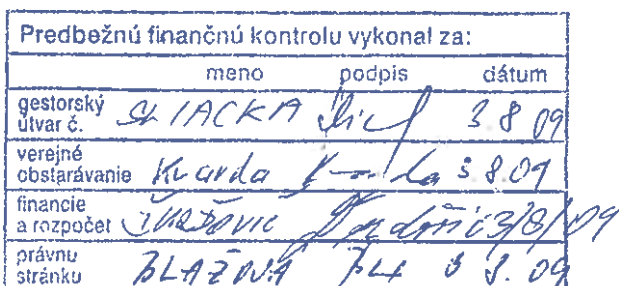 Predbežnú finančnú kontrolu vykonal za:
meno podpis dátum
gestorský
útvar č. 3.8.09
verejné
obstarávanie Kvarda 3.8.09
financie
a rozpočet 3/8/09
právnu
stránku BLAŽOVÁ 3 8. 09